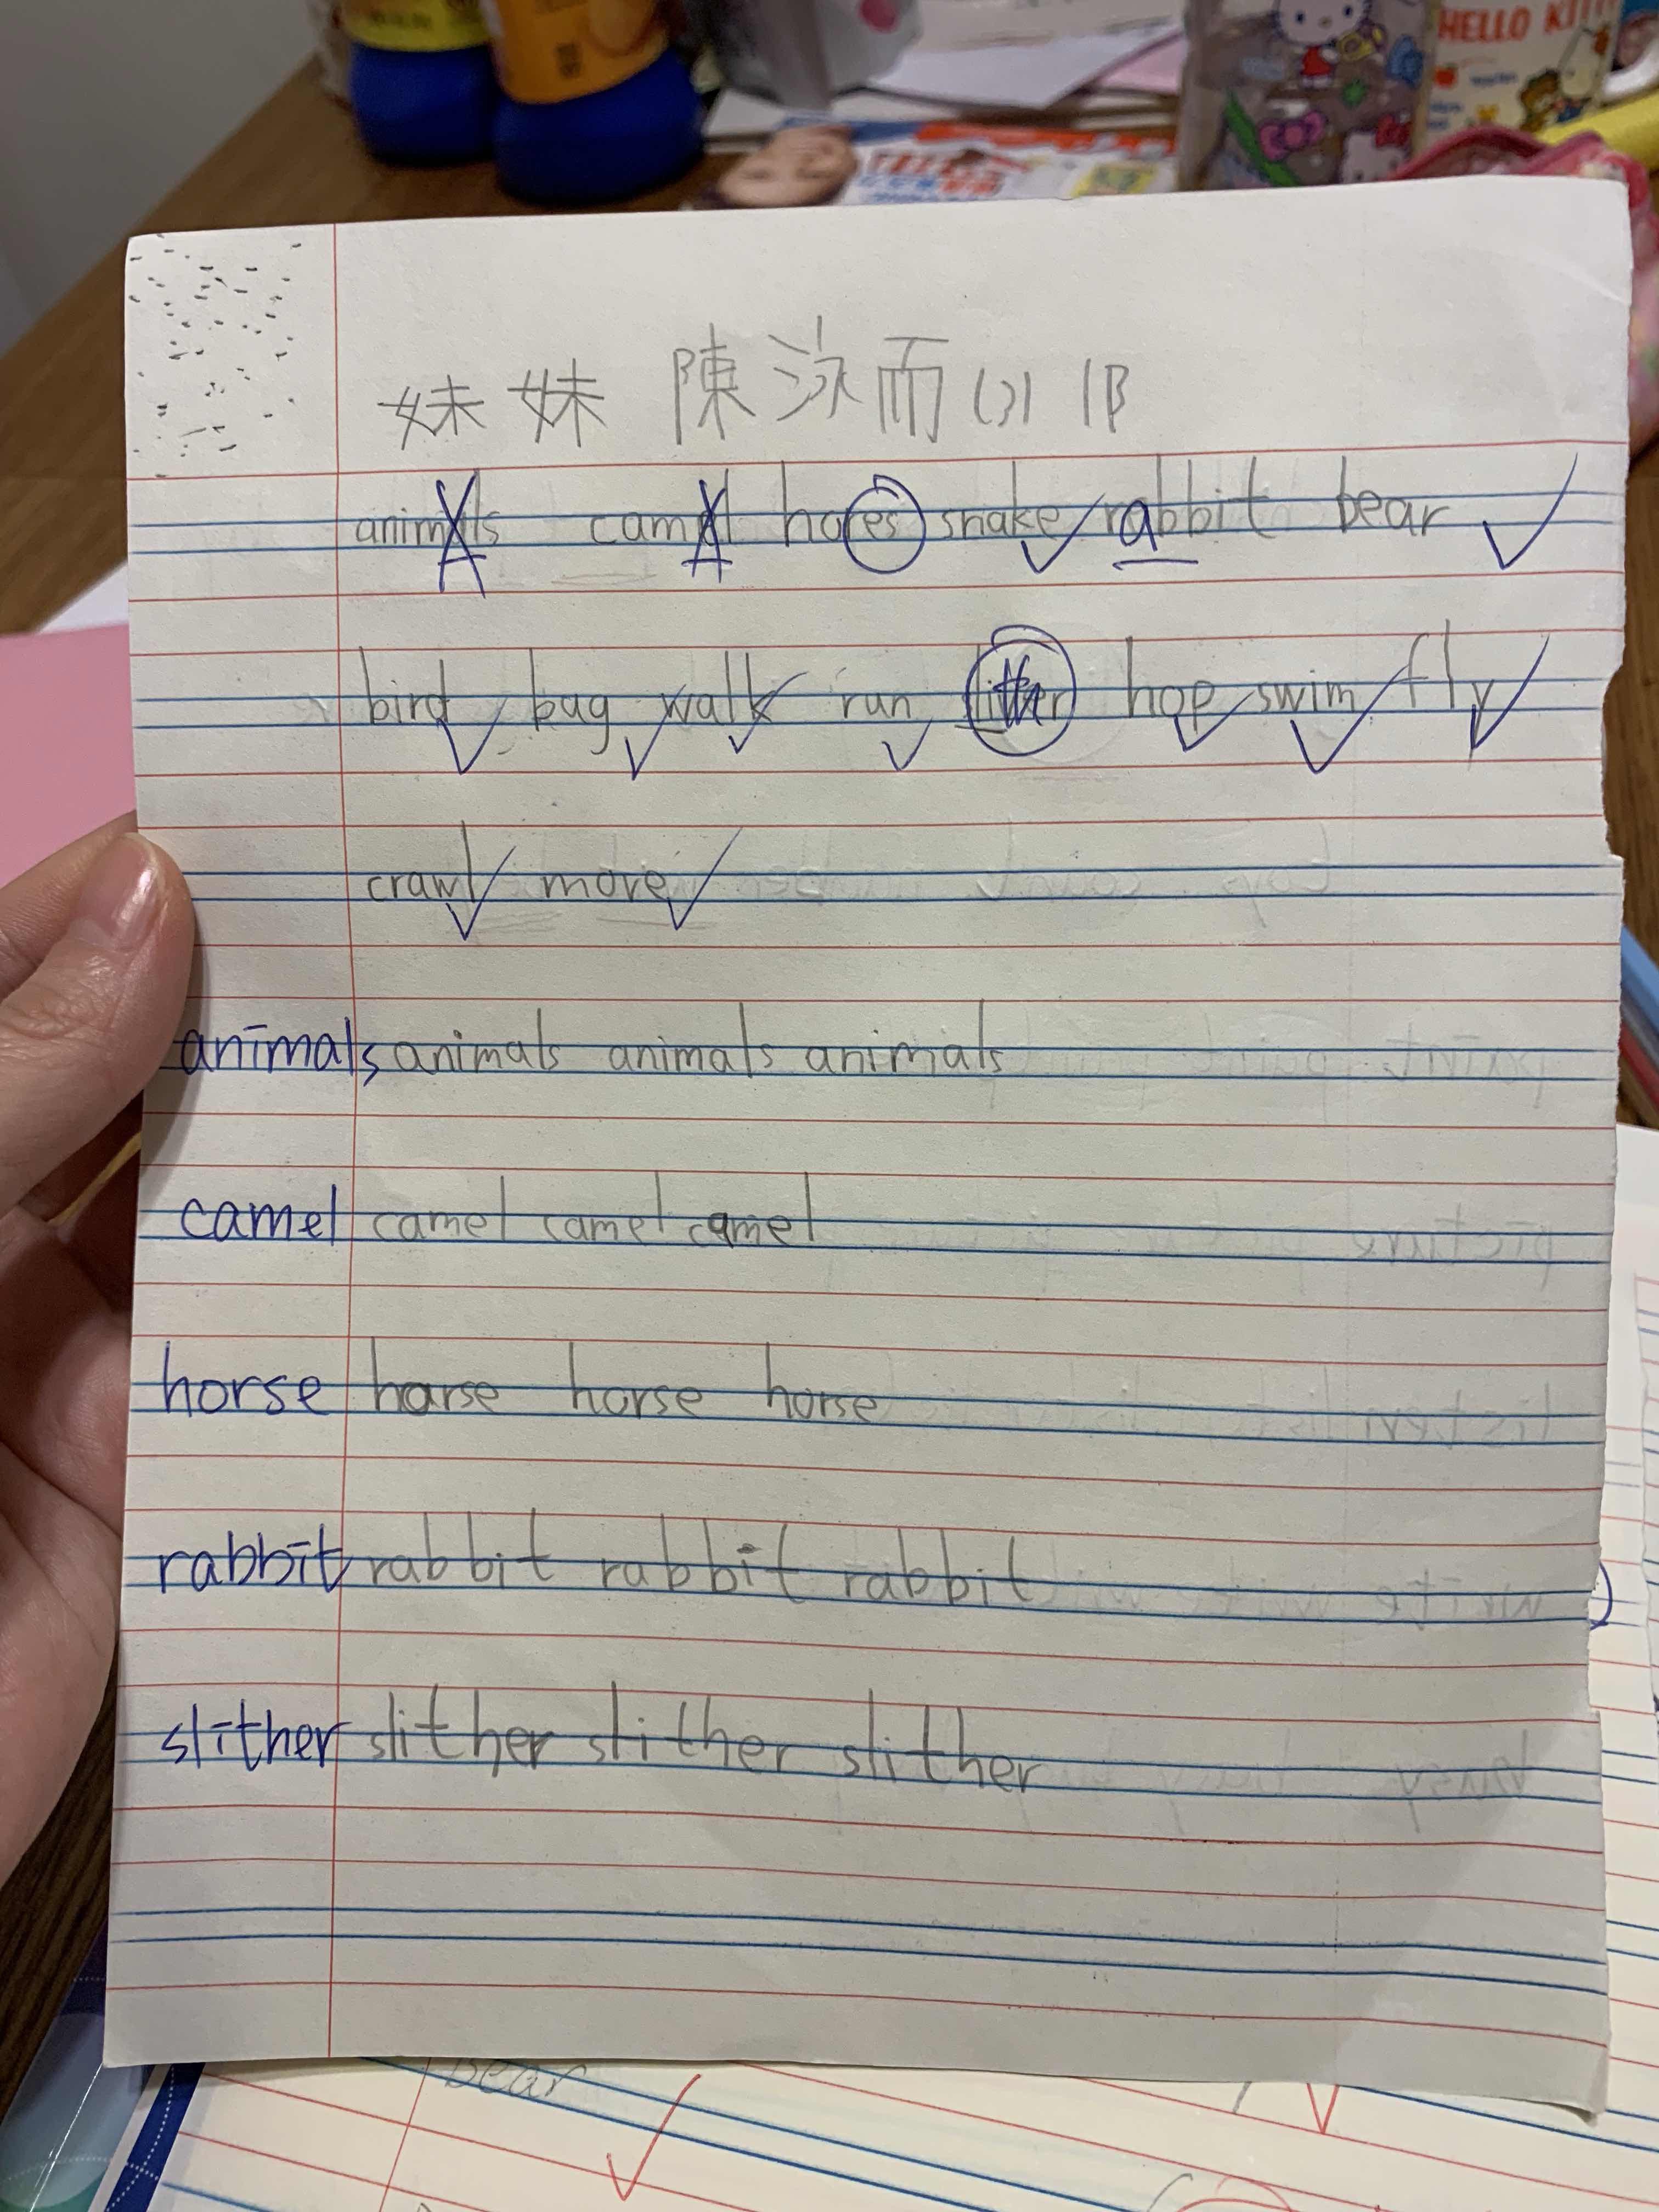 HELLO KITTY
妹妹 陳泳而 (3) 1B
animals camel hores snake rabbit bear
bird bag walk run slither hop swim fly
crawl more
animals animals animals animals
camel camel camel camel
horse horse horse horse
rabbit rabbit rabbit rabbit
slither slither slither slither
Bear